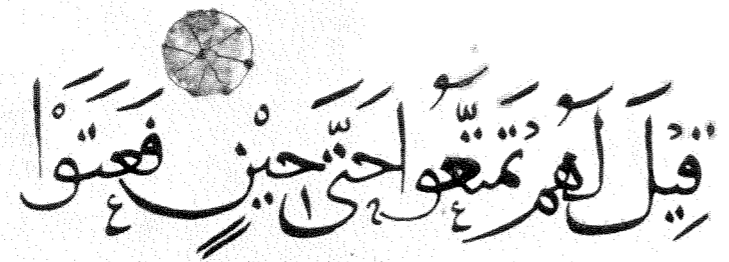 قِيلَ لَهُمْ تَمَتَّعُوا حَتَّى حِينٍ فَعَتَوْا